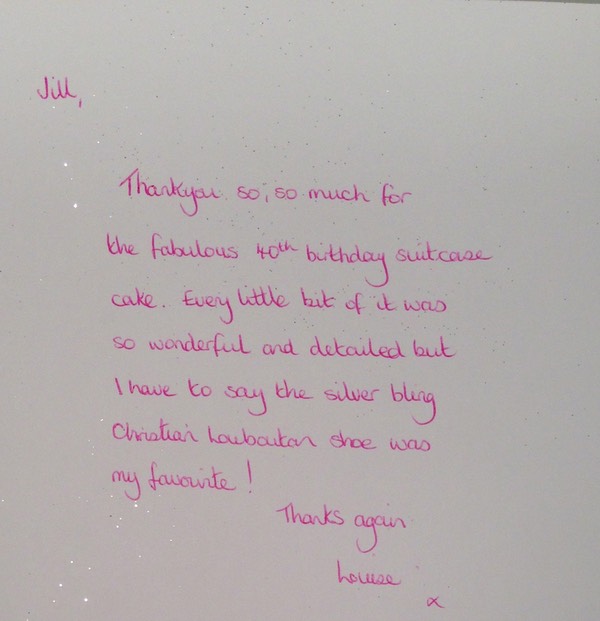 Jill,
Thankyou so, so much for
the fabulous 40th birthday suitcase
cake. Every little bit of it was
so wonderful and detailed but
I have to say the silver bling
Christian Louboutan shoe was
my favourite!
Thanks again
Louise
x